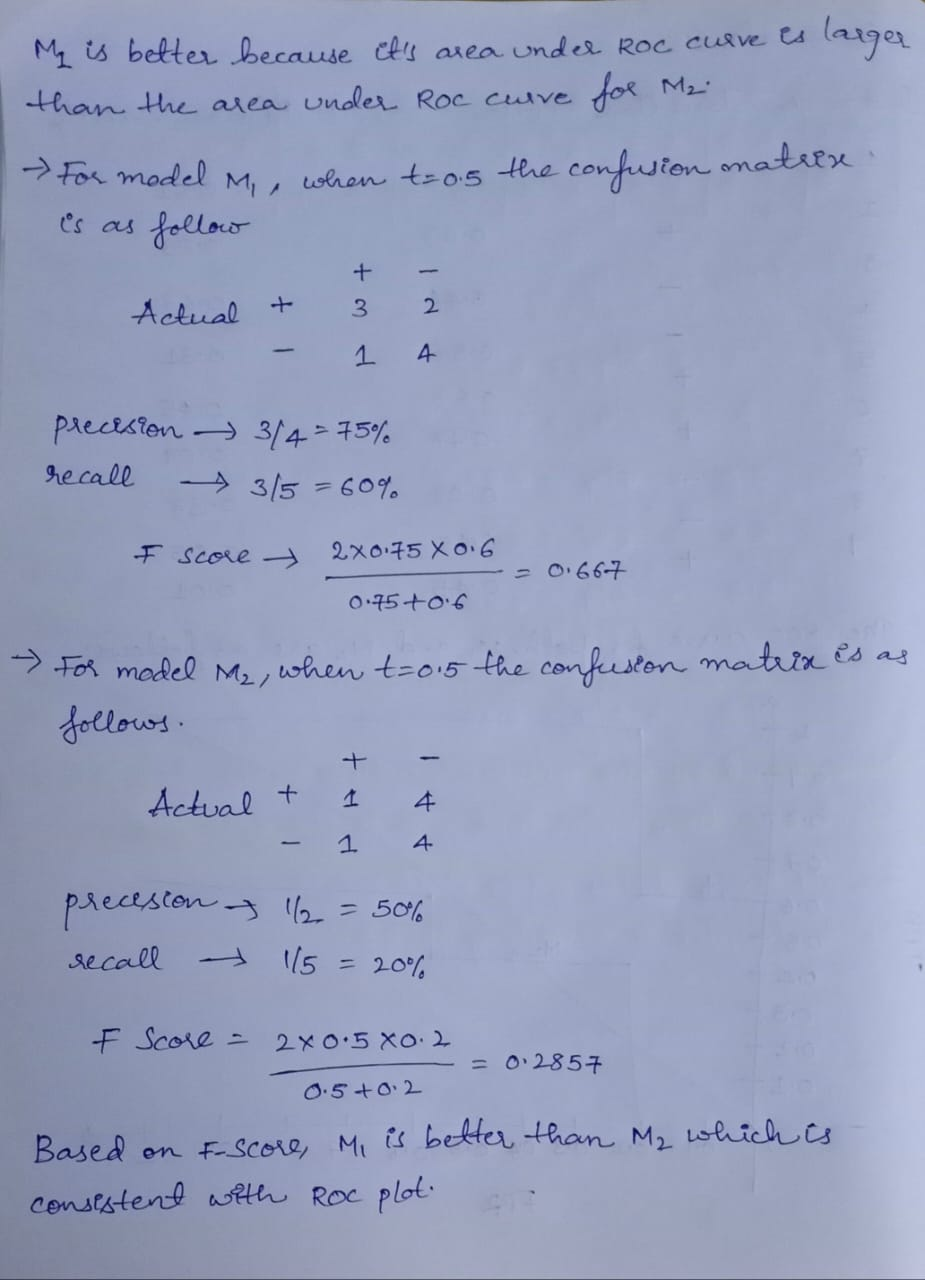 M1 is better because it's area under ROC curve is larger
than the area under ROC curve for M2.
→ For model M1, when t=0.5 the confusion matrix
is as follow
+ −
Actual + 3 2
− 1 4
precision → 3/4 = 75%
recall → 3/5 = 60%
F score → 2×0.75×0.6
= 0.667
0.75+0.6
→ For model M2, when t=0.5 the confusion matrix is as
follows.
+ −
Actual + 1 4
− 1 4
precesion → 1/2 = 50%
recall → 1/5 = 20%
F Score = 2×0.5×0.2
= 0.2857
0.5+0.2
Based on F-Score, M1 is better than M2 which is
consistent with ROC plot.